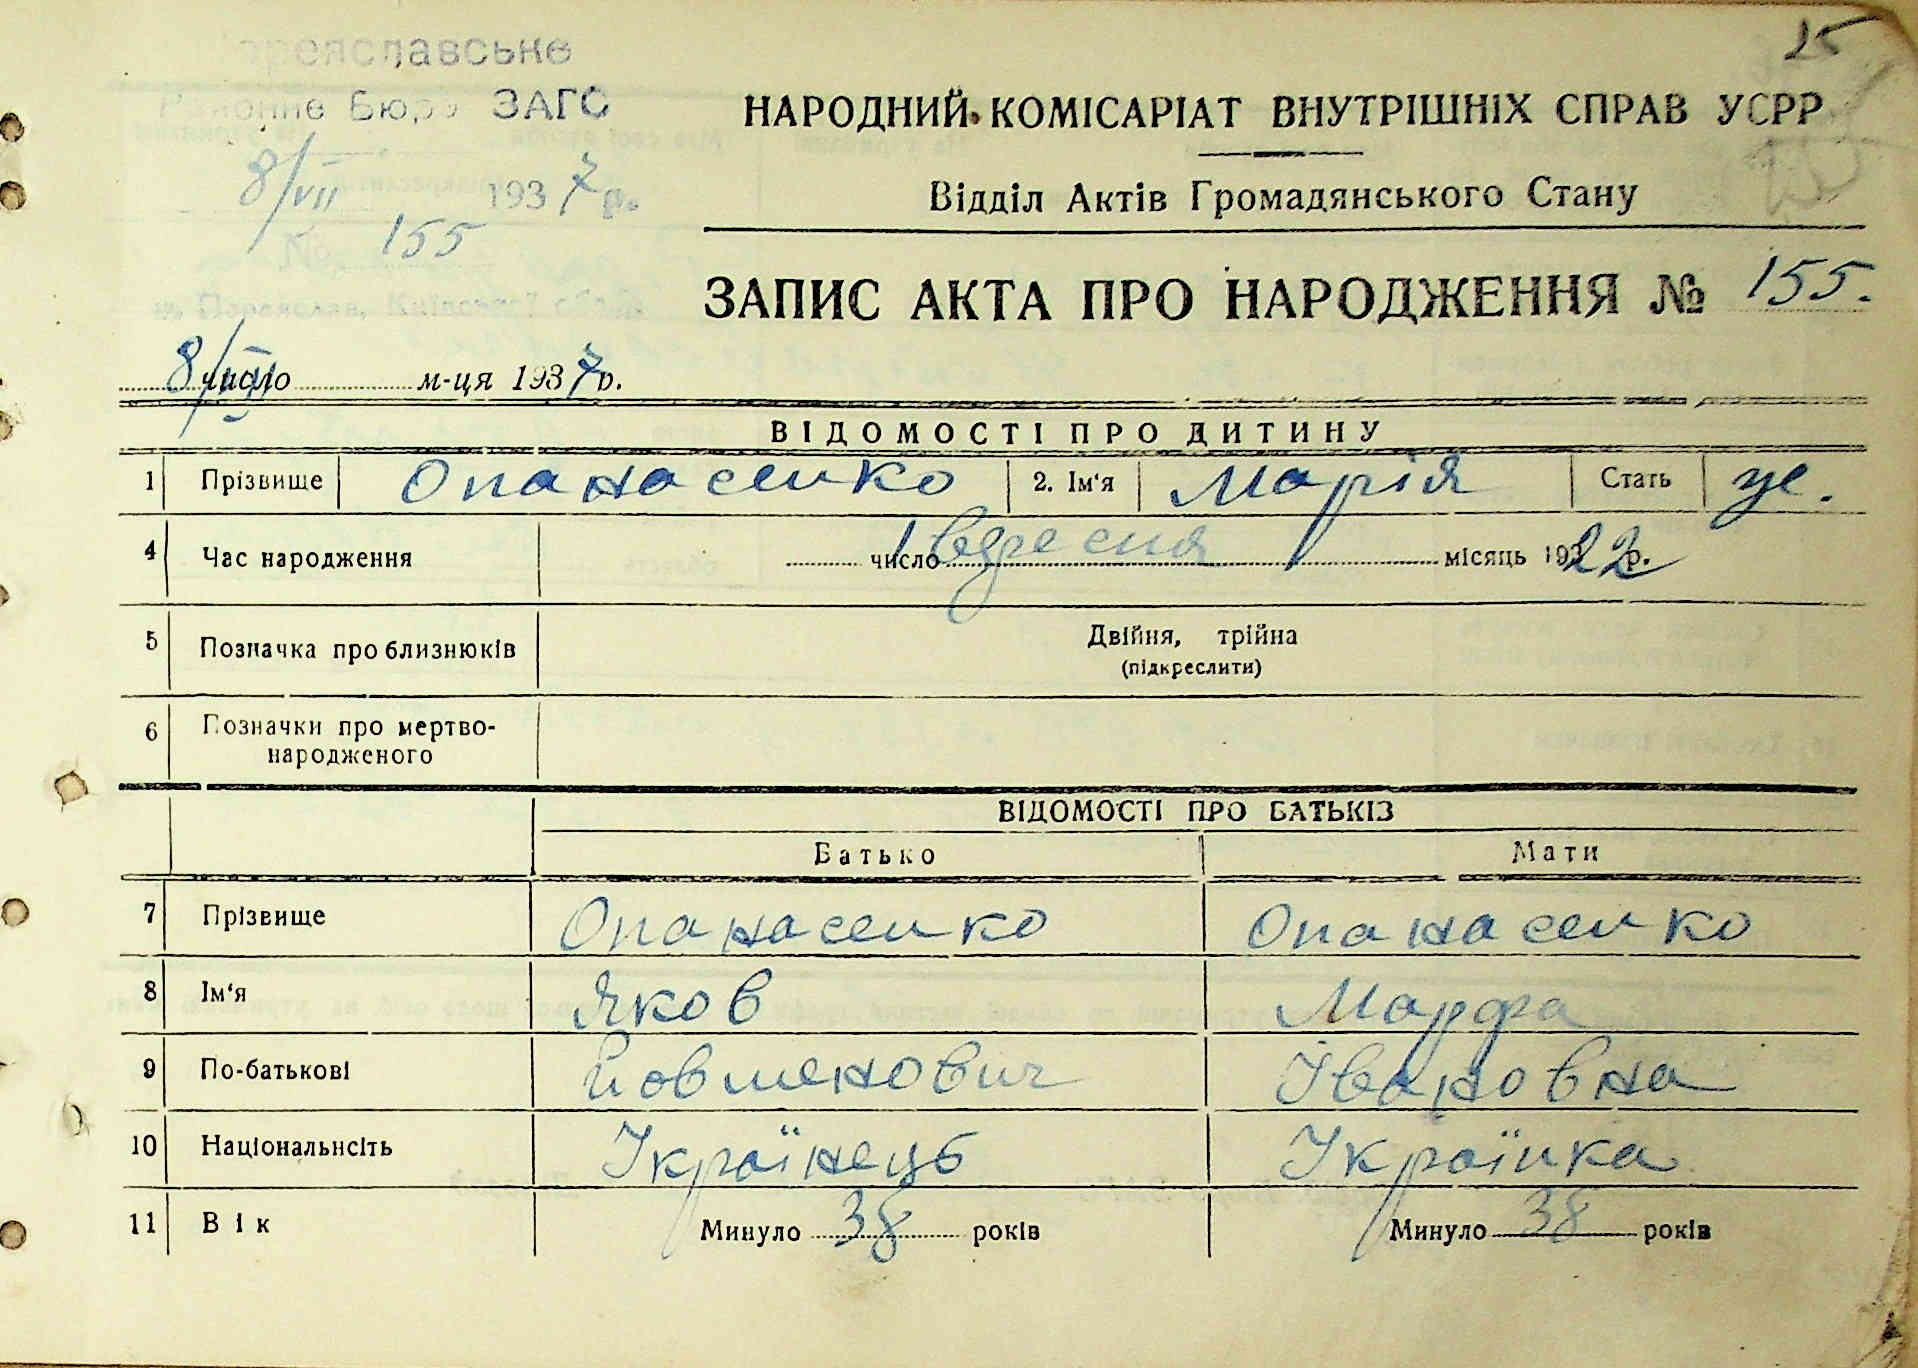 25
Переяславське
Районне Бюро ЗАГС
8/VII 1937 р.
№ 155
м. Переяслав, Київської обл.
НАРОДНИЙ КОМІСАРІАТ ВНУТРІШНІХ СПРАВ УСРР
Відділ Актів Громадянського Стану
ЗАПИС АКТА ПРО НАРОДЖЕННЯ № 155.
8/VII число м-ця 1937 р.
ВІДОМОСТІ ПРО ДИТИНУ
1 Прізвище Опанасенко 2. Ім'я Марія Стать ж.
4 Час народження 1 число вересня місяць 1922 р.
5 Позначка про близнюків Двійня, трійна
(підкреслити)
6 Позначки про мертво-
народженого
ВІДОМОСТІ ПРО БАТЬКІВ
Батько Мати
7 Прізвище Опанасенко Опанасенко
8 Ім'я Яков Марфа
9 По-батькові Йовменович Івановна
10 Національнсіть Українець Українка
11 Вік Минуло 38 років Минуло 38 років